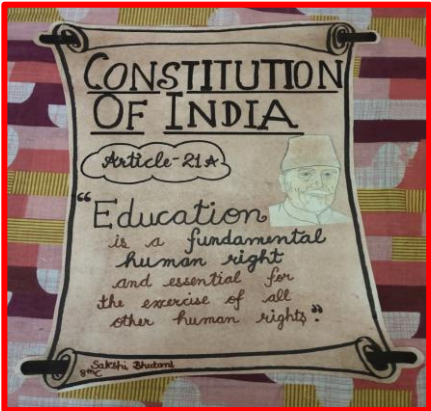 CONSTITUTION
OF INDIA
Article-21A
"Education
is a fundamental
human right
and essential for
the exercise of all
other human rights."
Sakshi Bhutani
8th C